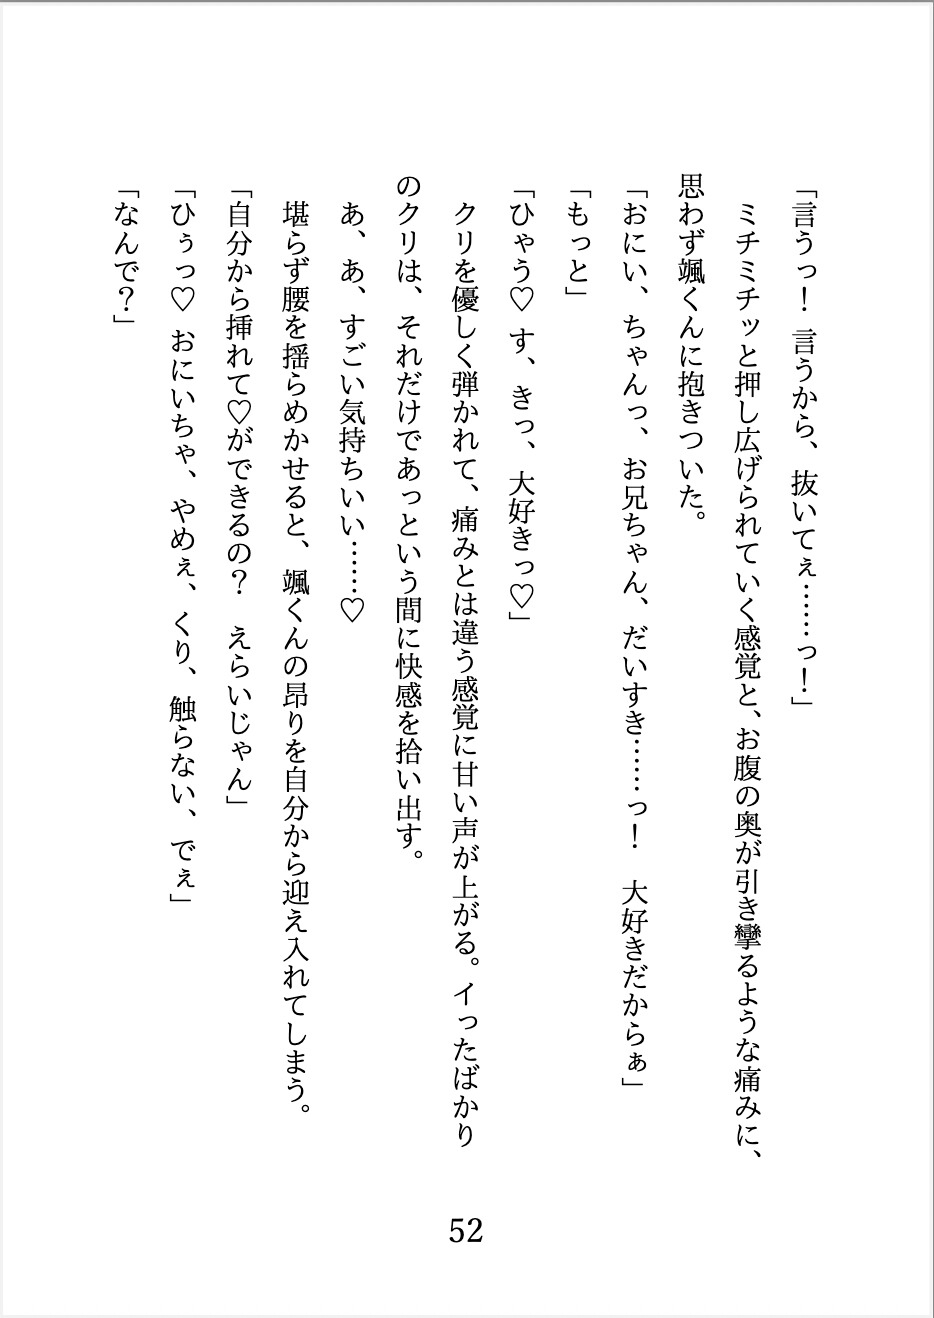 「言うっ！ 言うから、抜いてぇ……っ！」
ミチミチッと押し広げられていく感覚と、お腹の奥が引き攣るような痛みに、
思わず颯くんに抱きついた。
「おにい、ちゃんっ、お兄ちゃん、だいすき……っ！　大好きだからぁ」
「もっと」
「ひゃう♡ す、きっ、大好きっ♡」
クリを優しく弾かれて、痛みとは違う感覚に甘い声が上がる。イったばかり
のクリは、それだけであっという間に快感を拾い出す。
あ、あ、すごい気持ちいい……♡
堪らず腰を揺らめかせると、颯くんの昂りを自分から迎え入れてしまう。
「自分から挿れて♡ができるの？　えらいじゃん」
「ひぅっ♡ おにいちゃ、やめぇ、くり、触らない、でぇ」
「なんで？」
52